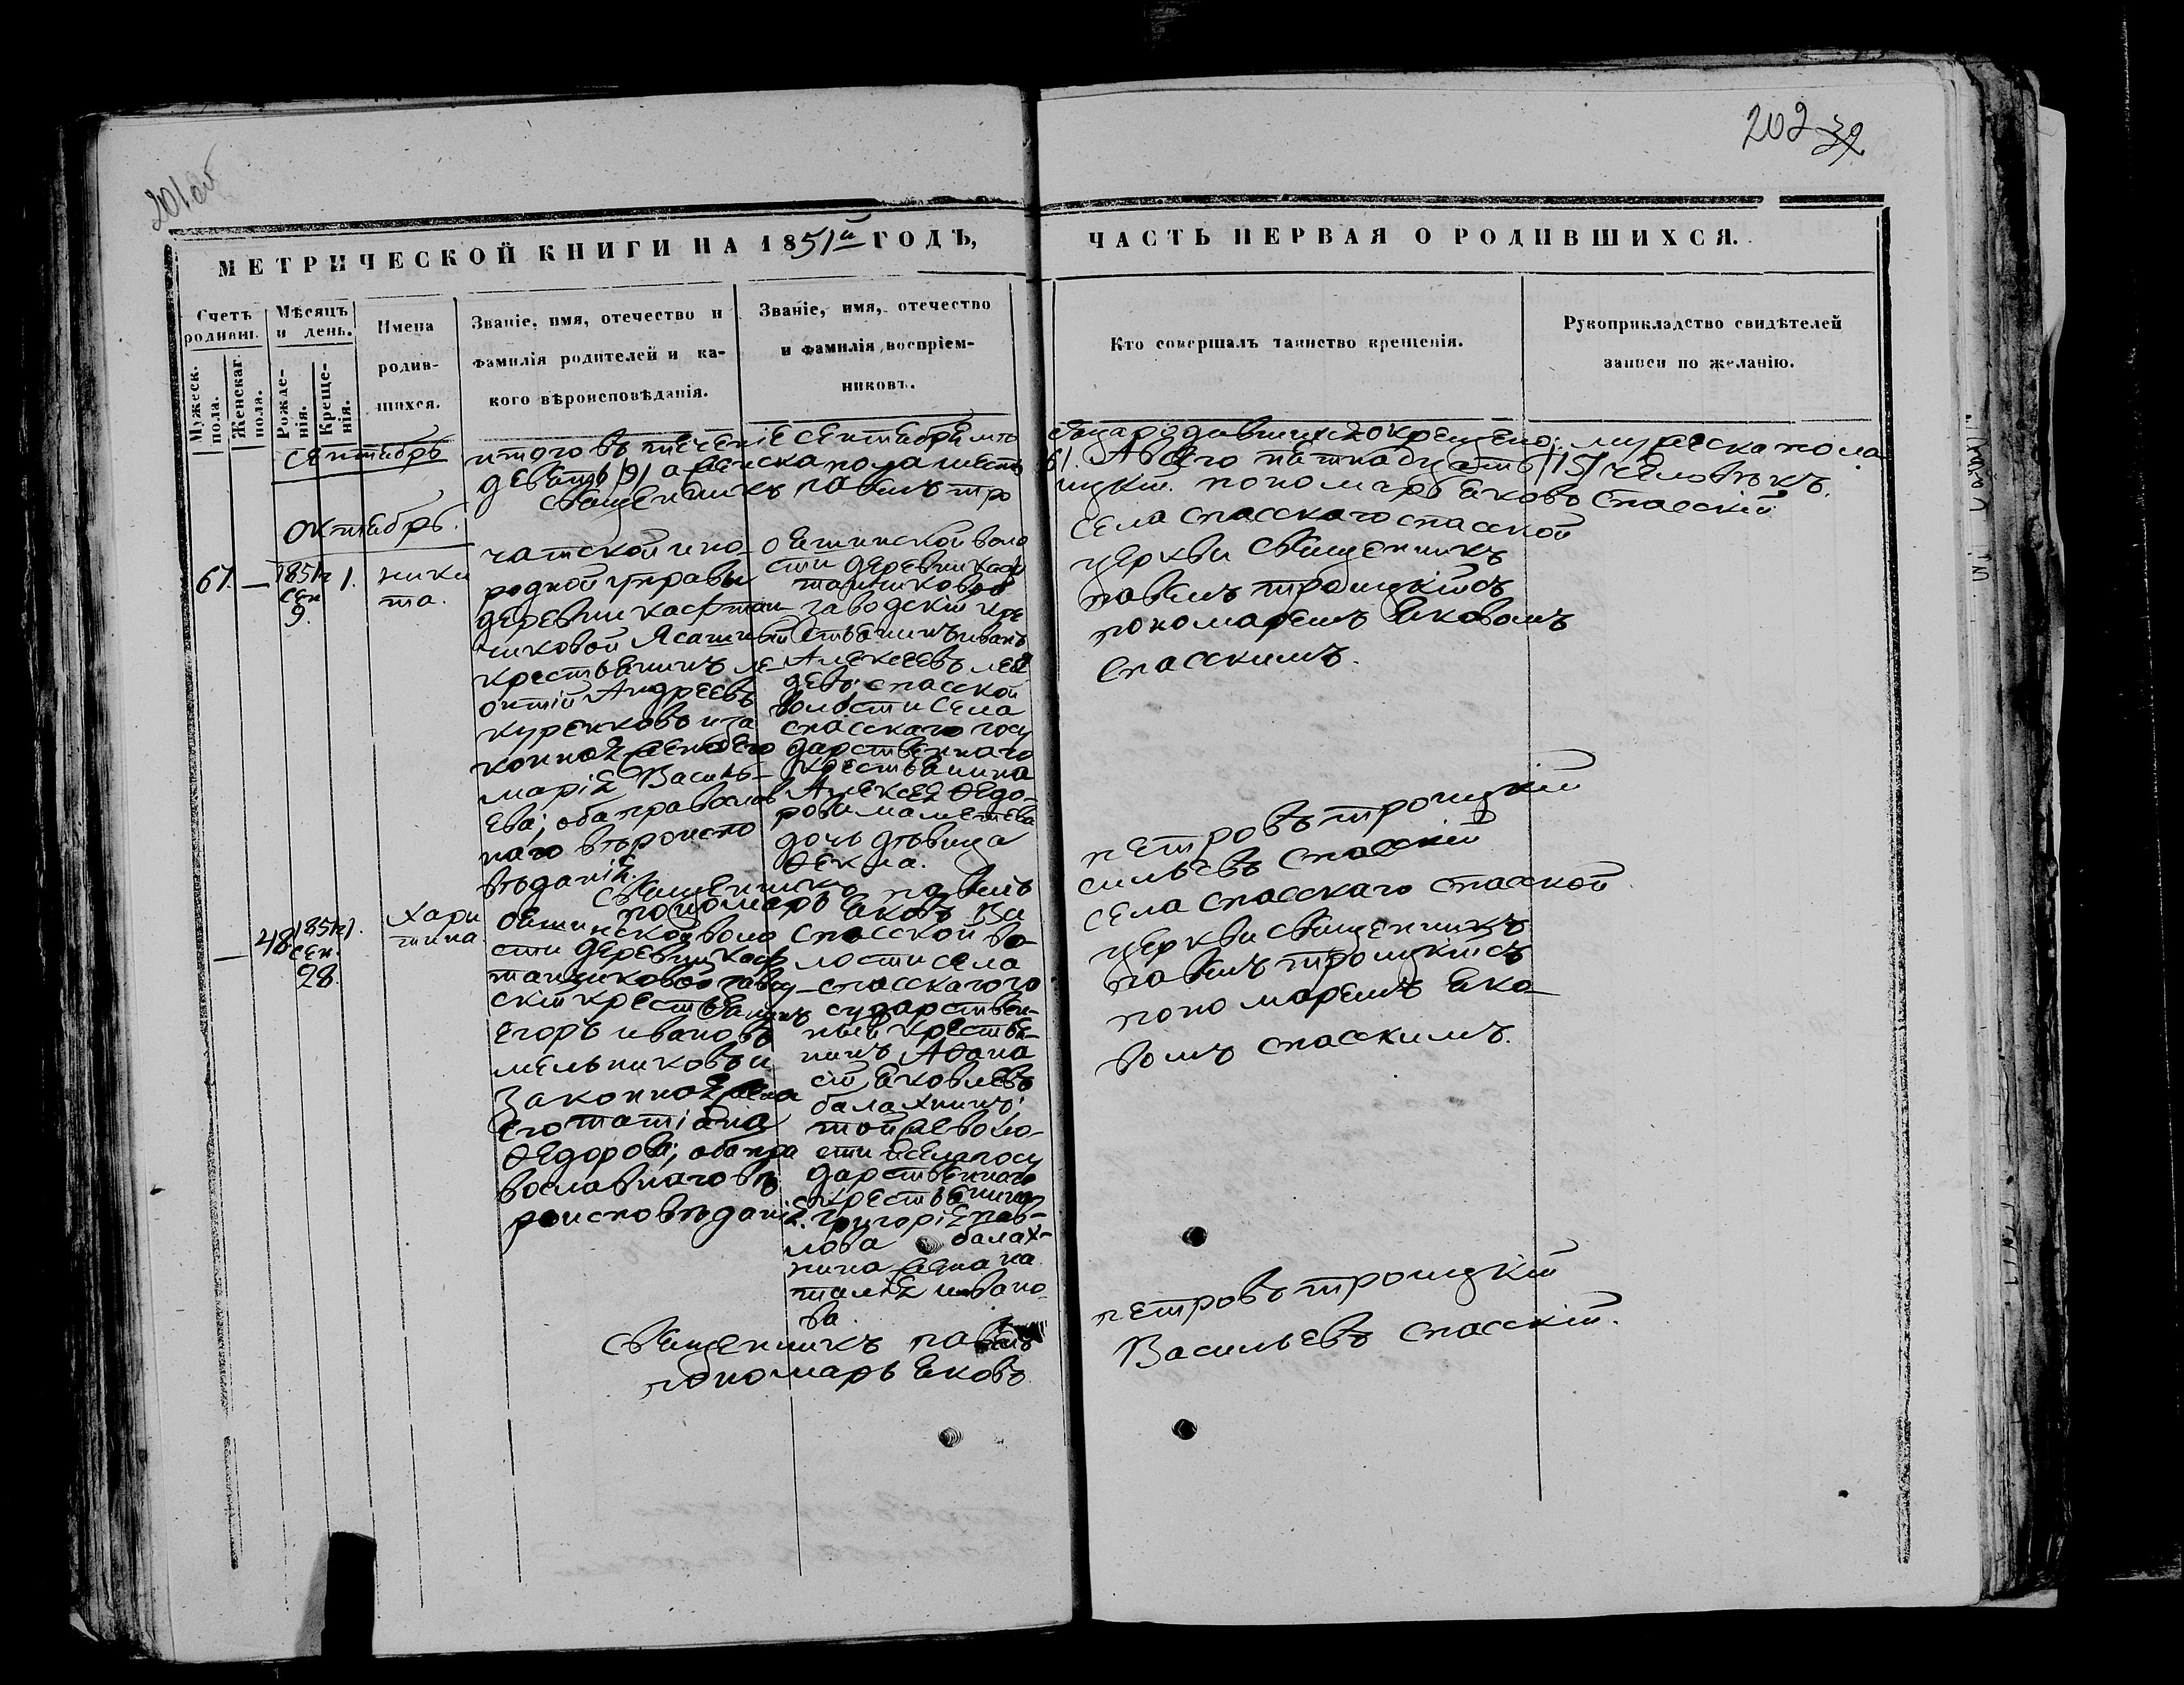 201об
202 32
МЕТРИЧЕСКОЙ КНИГИ НА 1851й ГОДЪ,
ЧАСТЬ ПЕРВАЯ О РОДИВШИХСЯ.
Счетъ родивш.
Мужеск. пола.
Женскаг. пола.
Мѣсяцъ и день.
Рожде-
нія.
Креще-
нія.
Имена
родив-
шихся.
Званіе, имя, отечество и
фамилія родителей и ка-
кого вѣроисповѣданія.
Званіе, имя, отечество
и фамилія воспріем-
никовъ.
Кто совершалъ таинство крещенія.
Рукоприкладство свидѣтелей
записи по желанію.
Сентябрь
итого въ теченіе сентября мѣ
сяца родившихся окрещено: мужеска пола
девять /9/ а женска пола шесть
/6/. А всего пятнадцать /15/ человѣкъ.
Священникъ Павелъ Тро
ицкій. Пономарь Яковъ Спасскій
Октябрь.
67. —
1851 г
сен
9.
1.
Ники
та.
чатской ино
родной управы
деревни Кафтан
чиковой Ясашный
крестьянинъ Ле
онтій Андреевъ
Куренковъ и за
конная жена его
Марія Василь
ева; оба православ
наго вѣроиспо
вѣданія.
деревни Каф
танчиковой
заводскій кре
стьянинъ Иванъ
Алексеевъ Лебе
девъ; Спасской
волости села
Спасскаго госу
дарственнаго
крестьянина
Алексея Ѳедо-
дочь дѣвица
Ѳекла.
села Спасскаго Спасской
церкви Священникъ
Павелъ Троицкій съ
пономаремъ Яковомъ
Спасскимъ.
Священникъ Павелъ
Петровъ Троицкій
Пономарь Яковъ Ва
сильевъ Спасскій
— 48
1851 г
сен.
28.
1.
Хари
тина.
воло
сти деревни Каф
танчиковой завод
скій крестьянинъ
Егоръ Ивановъ
Мельниковъ и
законная жена
его Татіана
Ѳедорова; оба пра
вославнаго вѣ
роисповѣданія.
Спасской во-
лости села
Спасскаго го
сударствен-
ный крестья-
нинъ Аѳана
сій Яковлевъ
Балахнинъ;
той же воло-
сти и села госу
дарственнаго
крестьянина
Григорія Пав-
лова Балах-
нина жена На
талія Ивано
ва.
села Спасскаго Спасской
церкви Священникъ
Павелъ Троицкій съ
пономаремъ Яко-
вомъ Спасскимъ.
Священникъ Павелъ
Петровъ Троицкій
Пономарь Яковъ
Васильевъ Спасскій.